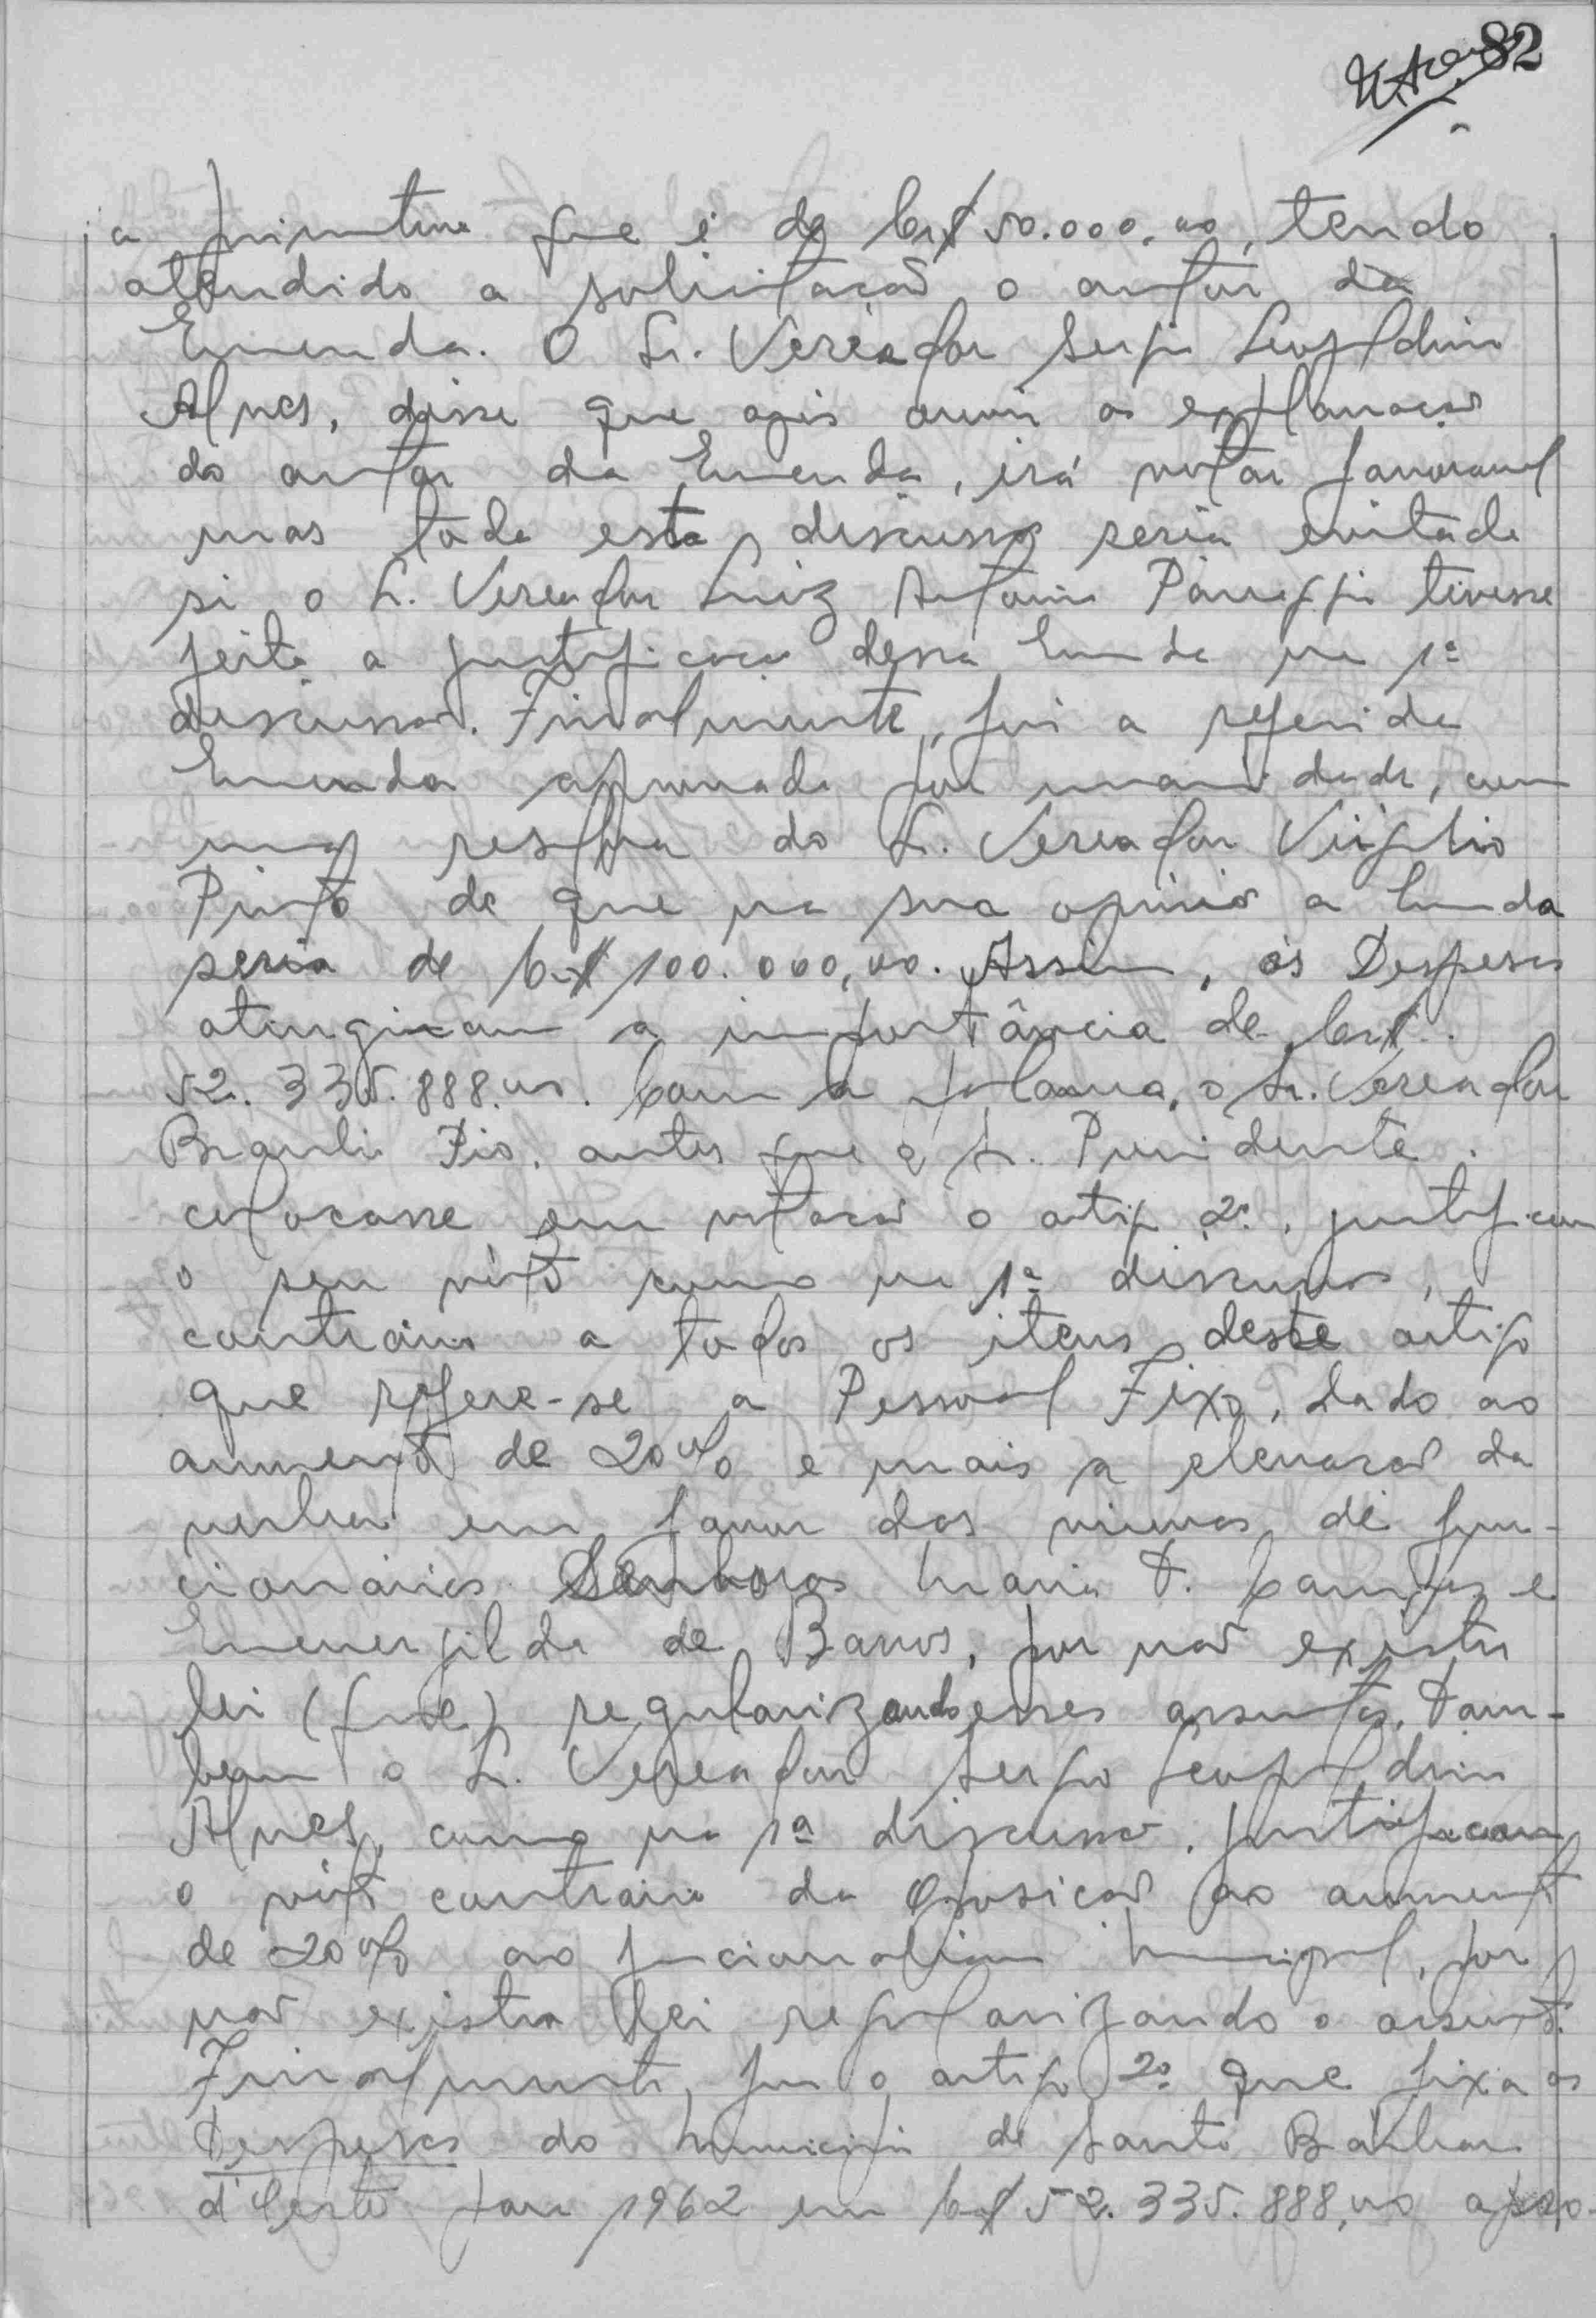 82
a primitiva que é de Cr$ 50.000,00, tendo
atendido a solicitação o autor da
Emenda. O Sr. Vereador Sergio Leopoldino
Alves, disse que após ouvir as explanação
do autor da Emenda, irá votar favoravel
mas toda esta discussão seria evitada
si o Sr. Vereador Luiz Antonio Panaggio tivesse
feito a justificação dessa Emenda na 1ª
discussão. Finalmente, foi a referida
Emenda aprovada por unanimidade, com
uma resalva do Sr. Vereador Virgilio
Pinto de que na sua opinião a Emenda
seria de Cr$ 100.000,00. Assim, as Despesas
atingiram a importância de Cr$.
52.335.888,00. Com a palavra, o Sr. Vereador
Braulio Pio, antes que o Sr. Presidente
colocasse em votação o artigo 2º, justificou
o seu vóto como na 1ª discussão,
contrário a todos os itens deste artigo
que refere-se a Pessoal Fixo, dado ao
aumento de 20% e mais a elevação da
verba em favor das viuvas de fun-
cionarios Senhoras Maria T. Campos e
Emenergilda de Barros, por não existir
lei (que) regularizando esses assuntos. Tam-
bem o Sr. Vereador Sergio Leopoldino
Alves, como na 1ª discussão, justificou
o vóto contrário da Oposição ao aumento
de 20% ao funcionalismo Municipal, por
não existir lei regularizando o assunto.
Finalmente, foi o artigo 2º que fixa as
Despesas do Municipio de Santa Bárbara
d'Oeste para 1962 em Cr$ 52.335.888,00 apro-